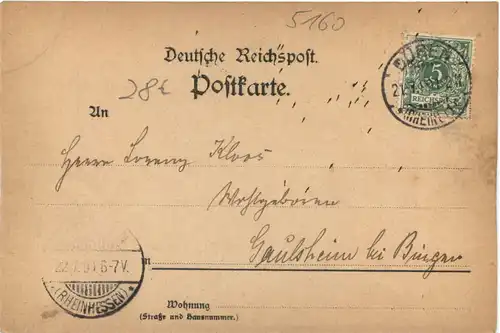 5160
Deutsche Reichspost.
28€
Postkarte.
DÜREN
5
REICHSPOST
(RHEINL.)
An
Herrn Lorenz Kloos
Wohlgeboren
Gaulsheim bei Bingen
22.7.94 6-7V.
(RHEINHESSEN)
in
Wohnung
(Straße und Hausnummer.)